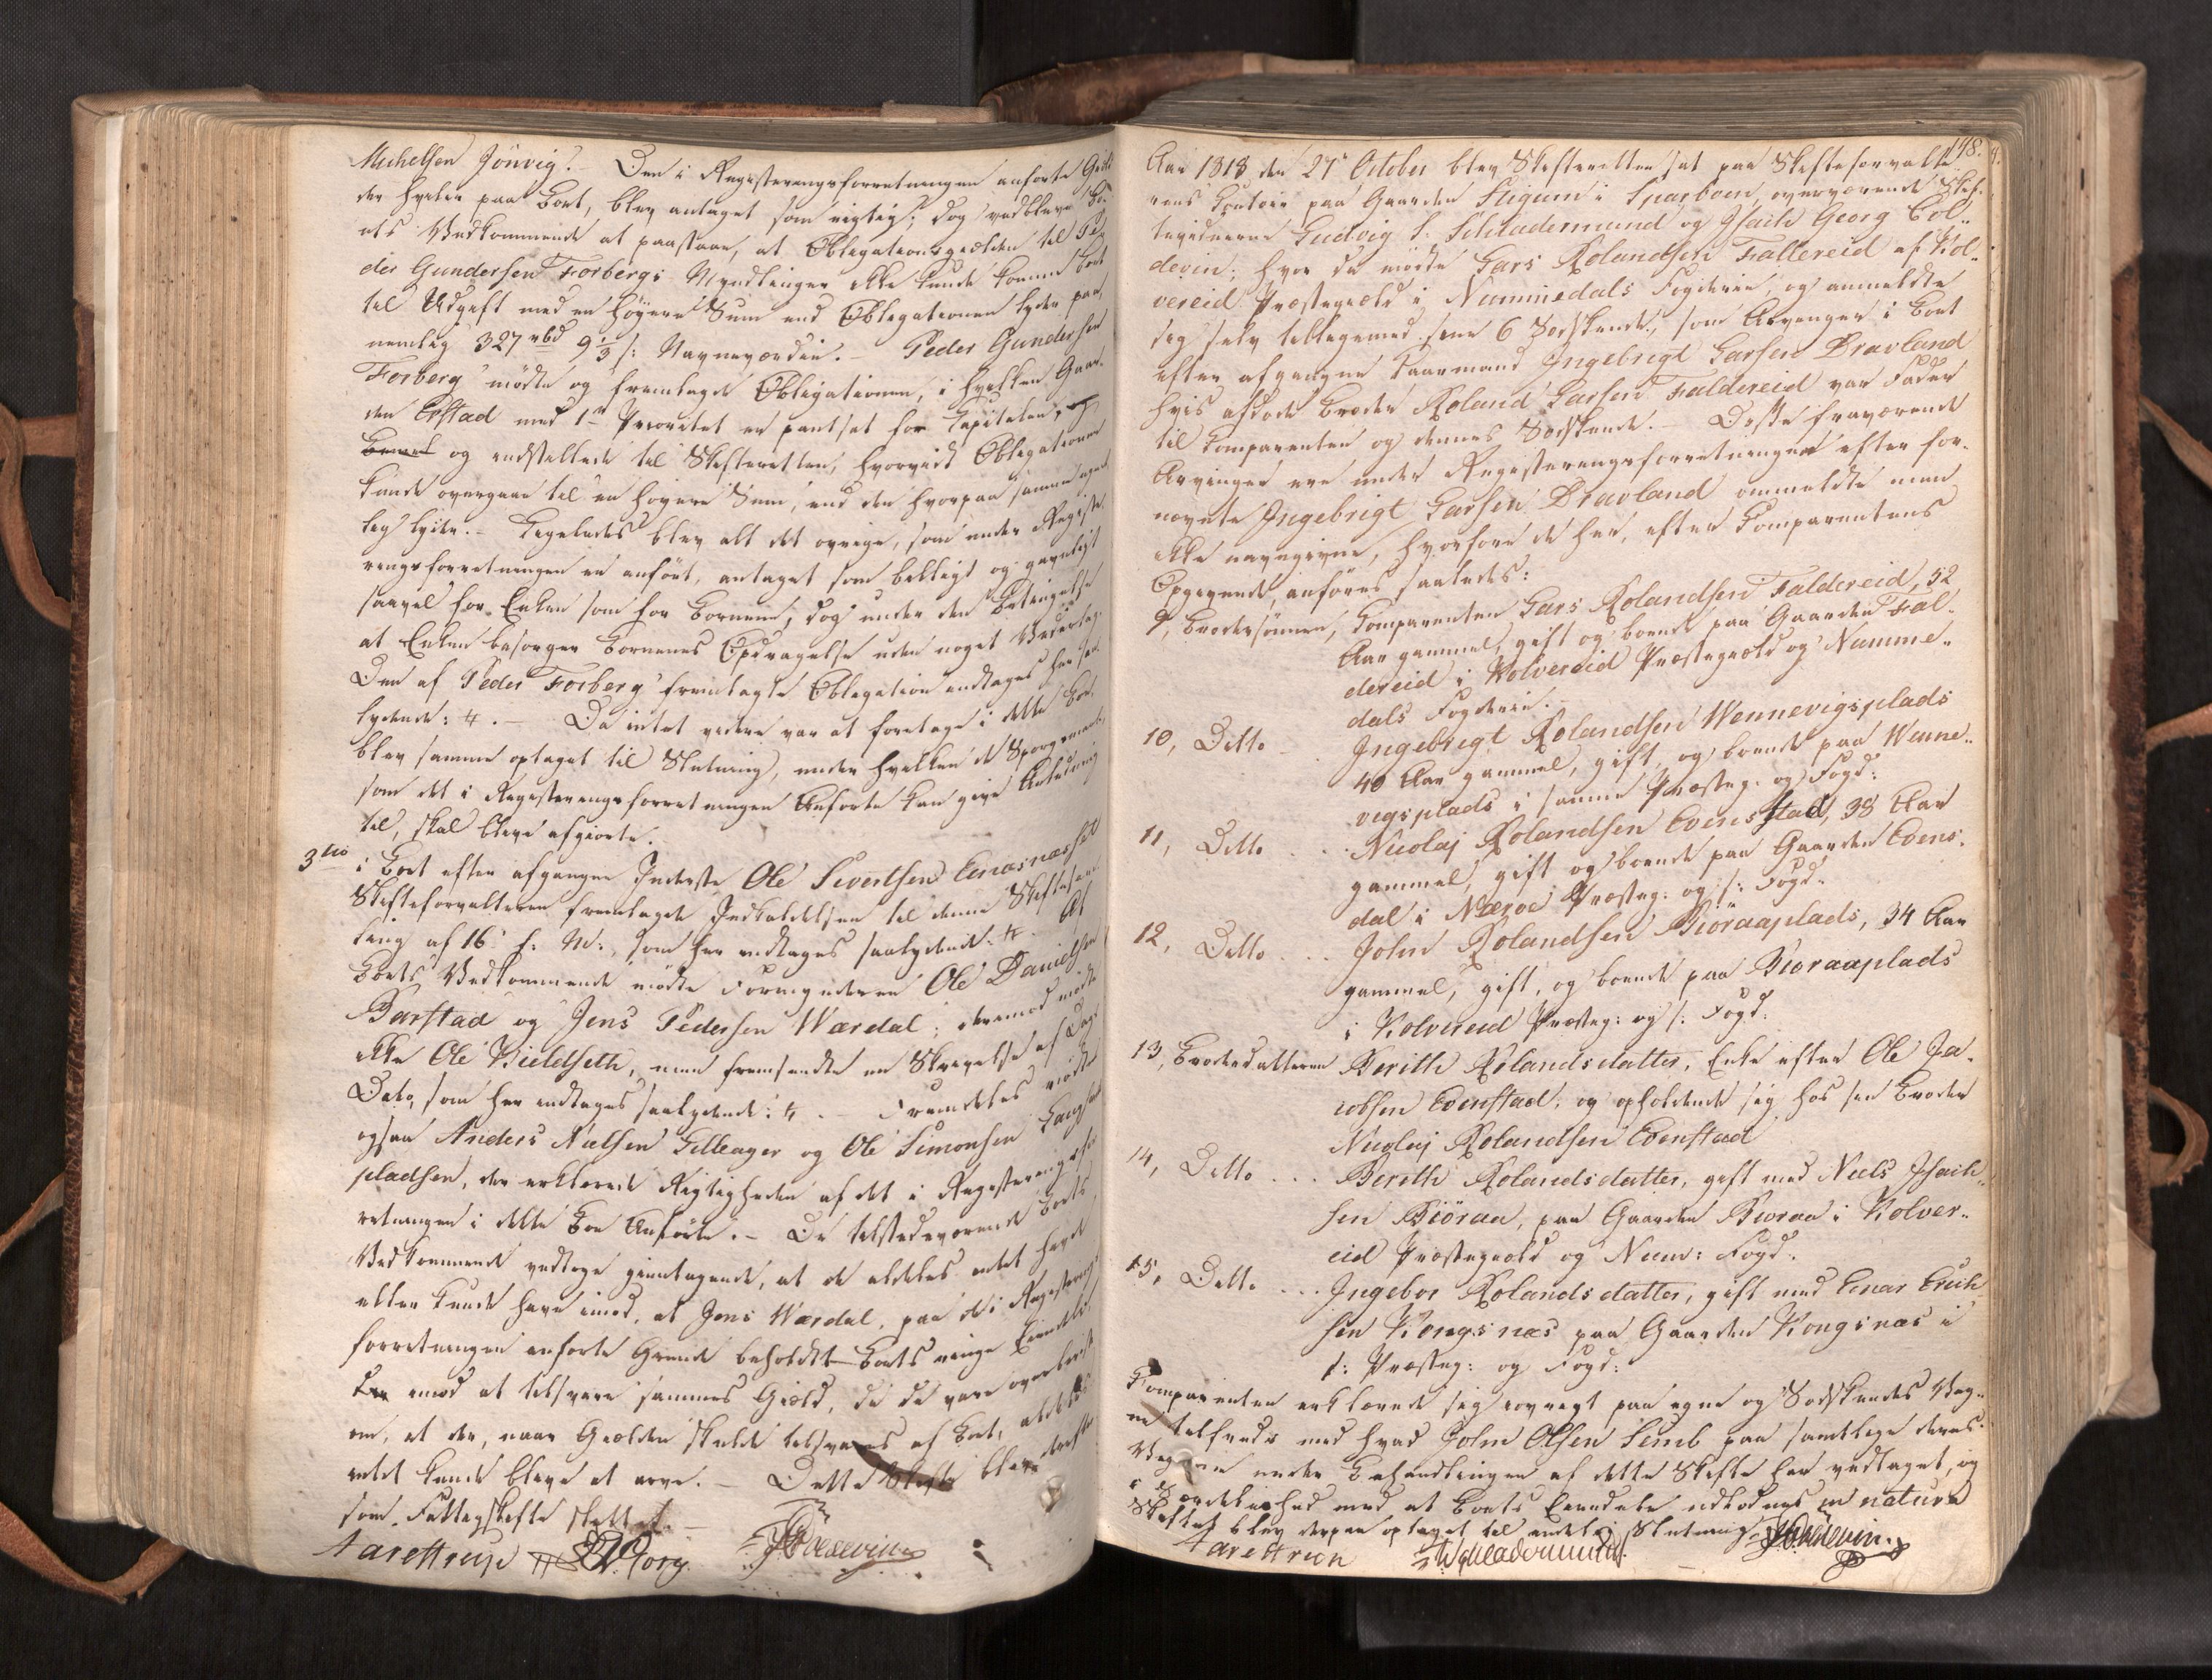 Michelsen Jönvig. Den i Registeringsforretningen anforte Giæld
der hviler paa Boet, blev antaget som rigtig; dog vedbleve Bo-
ets Vedkommende at paastaae, at Obligationsgielden til Pe-
der Gundersen Forbergs Myndlinger ikke kunde komme Boet
til Udgift med en höyere Sum end Obligationen lyder paa,
nemlig 327 rbd 9 1/3 s: Navneværdie. – Peder Gundersen
Forberg mödte og fremlagde Obligationen, i hvilken Gaar-
den Erstad med 1ste Prioritet er pantsat for Kapitalen,
og indstillede til Skifteretten, hvorvidt Obligationen
kunde overgaae til en höyere Sum, end den hvorpaa samme
lyder. – Ligeledes blev alt det ovrige, som under Registe-
ringsforretningen er anfört, antaget som billigt og gavnligt
saavel for Enken som for Bornene, dog under den Betingelse
at Enken besorger Bornenes Opdragelse uden noget Vederlag.
Den af Peder Forberg fremlagte Obligation indtages her saa
lydende: 4. – Da intet videre var at foretage i dette Boe,
blev samme optaget til Slutning, under hvilken de Sporgsmaale,
som det i Registeringsforretningen Anforte kan give Anledning
til, skal blive afgiorte.
3tio i Boet efter afgangne Inderste Ole Sivertsen Einasnæsset
Skifteforvalteren fremlagde Indkaldelsen til denne Skiftesam-
ling af 16 f: M:, som her indtages saalydende: 4. Af
Boets Vedkommende mödte Formynderen Ole Danielsen
Barstad og Jens Pedersen Wærdal; derimod mödte
ikke Ole Kieldseth, men fremsendte en Skrivelse af Dags
Dato, som her indtages saalydende: 4. – Fremdeles mödte
ogsaa Anders Nielsen Lilleager og Ole Simonsen
pladsen, der erklærede Rigtigheden af det i Registeringsfor
retningen i dette Boe Anförte. – De tilstedeværende Boets
Vedkommende vedtoge gientagende, at de aldeles intet havde
eller kunde have imod, at Jens Wærdal, paa de i Registerings
forretningen anforte Grunde beholdt Boets ringe Eiendele
imod at tilsvare sammes Giæld, da de vare overbeviste
om, at der, naar Gielden skulde tilsvares af Boet, aldeles
intet kunde blive at arve. – Dette Skifte blev derfor
som Fattigskifte sluttet. –
Aarestrup Borg JGColdevin
148.
Aar 1818 den 27de October blev Skifteretten sat paa Skifteforvalte-
rens Contoir paa Gaarden Stigum i Sparboen, overværende Skif-
tevidnerne Ludvig S. Schiadermund og Isach Georg Col-
devin; hvor da mödte Lars Rolandsen Fallereid af Kol-
vereid Præstegield i Nummedals Fogderie, og anmeldte
sig selv tilligemed sine 6 Södskende, som Arvinger i Boet
efter afgangne Kaarmand Ingebrigt Larsen Dravland
hvis afdöde Broder Roland Larsen Faldereid var Fader
til Comparenten og dennes Södskende. – Disse fraværende
Arvinger ere under Registeringsforretningen efter for-
nævnte Ingebrigt Larsen Dravland ommeldte men
ikke navngivne, hvorfore de her, efter Comparentens
Opgivende anföres saaledes:
9, Brodersönnen, Comparenten Lars Rolandsen Faldereid, 52
Aar gammel, gift og boende paa Gaarden Fal-
dereid i Kolvereid Præstegield og Numme-
dals Fogderie.
10, Ditto – Ingebrigt Rolandsen Wennevigsplads
40 Aar gammel, gift, og boende paa Wenne-
vigsplads i samme Præsteg: og Fogd:
11, Ditto ... Nicolaj Rolandsen Evensstad, 38 Aar
gammel, gift og boende paa Gaarden Evens-
dal i Næroe Præsteg: og s: Fogd.
12, Ditto ... John Rolandsen Biöraaplads, 34 Aar
gammel, gift, og boende paa Bioraaplads
i Kolvereid Præsteg: og s: Fogd:
13, Broderdatteren Berith Rolandsdatter, Enke efter Ole Ja-
cobsen Evenstad, og opholdende sig hos sin Broder
Nicolaj Rolandsen Evenstad
14, Ditto ... Berith Rolandsdatter, gift med Niels Isach-
sen Biöraa, paa Gaarden Bioraa i Kolver-
eid Præstegield og Num: Fogd.
15, Ditto ... Ingebor Rolandsdatter, gift med Einar Erich
sen Kongsnæs paa Gaarden Kongsnæs i
s: Præsteg: og Fogd:
Comparenten erklærede sig iovrigt paa egne og Södskendes Veg-
ne tilfreds med hvad John Olsen Semb paa samtlige deres
Vegne under Behandlingen af dette Skifte har vedtaget, og
i Særdeleshed med at Boets Eiendele udlodnes in natura
Skiftet blev derpaa optaget til endelig Slutning.
Aarestrup LSchiadermund. JGColdevin.